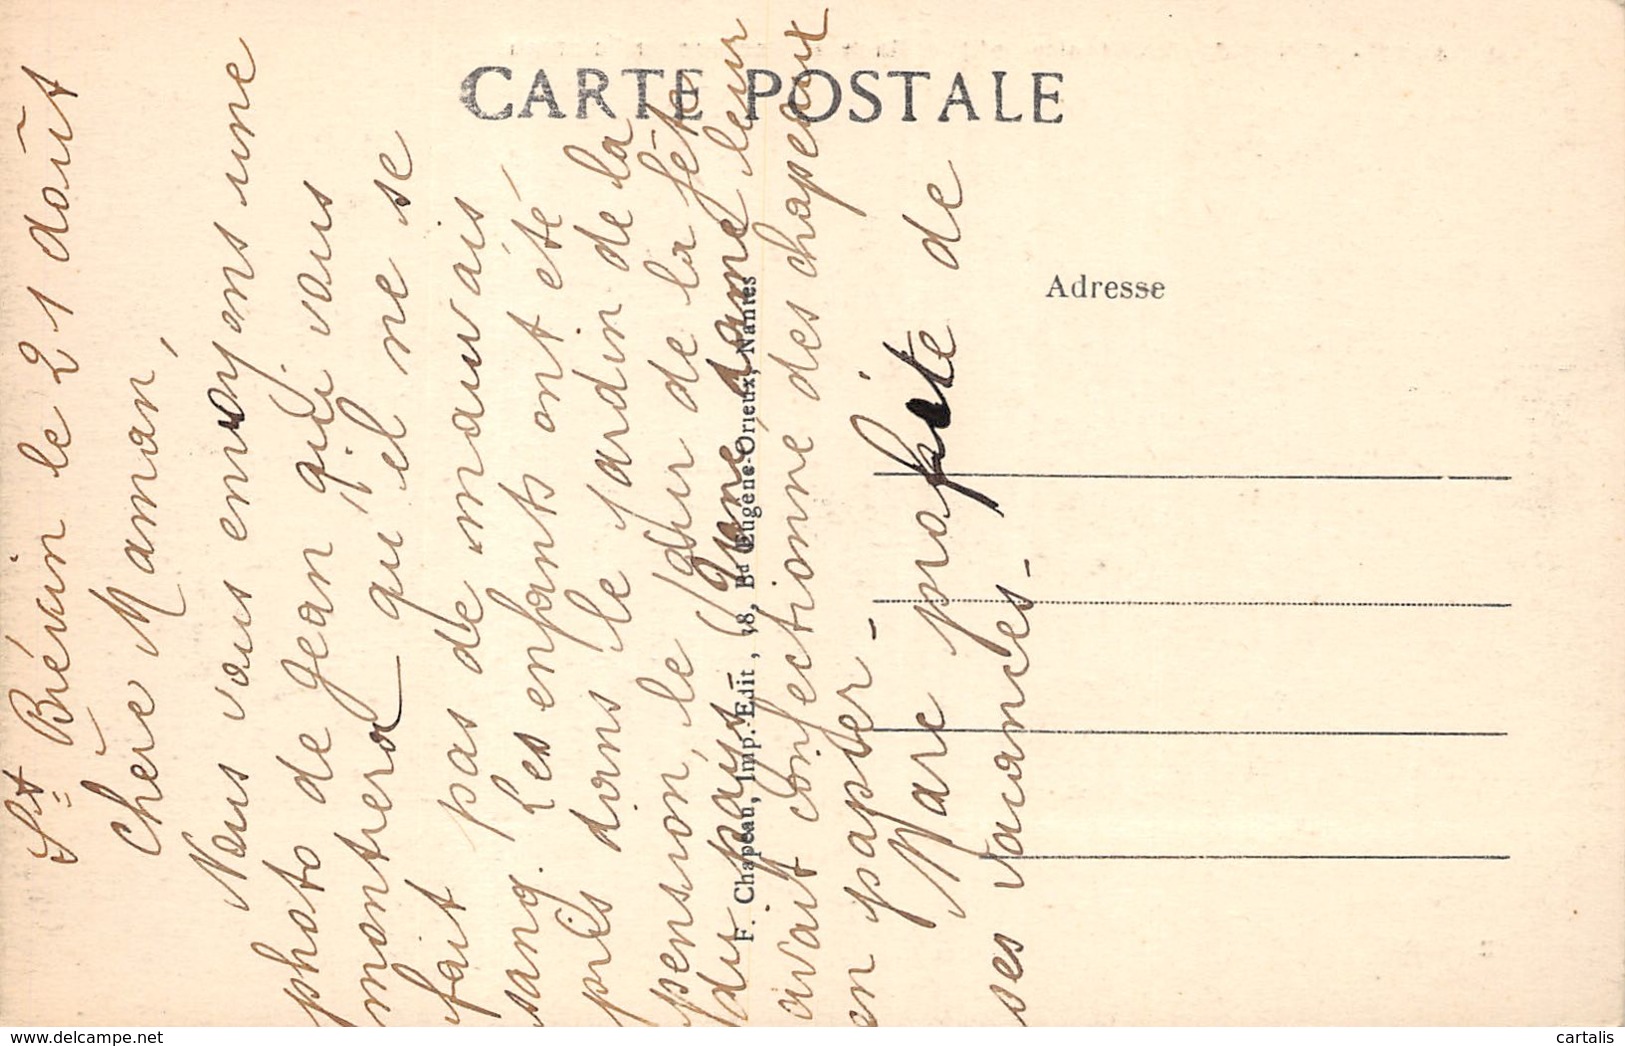 CARTE POSTALE
Adresse
F. Chapeau, Imp.-Edit, 38, Bd Eugène-Orieux, Nantes
St Brévin le 21 août
Chère Maman,
Nous vous envoyons une
photo de Jean qui vous
montrera qu'il ne se
fait pas de mauvais
sang. Les enfants ont été
pris dans le jardin de la
pension, le jour de la fête
du pays - Une dame leur
avait confectionné des chapeaux
en papier -
Marc profite de
ses vacances -
cartalis
www.delcampe.net